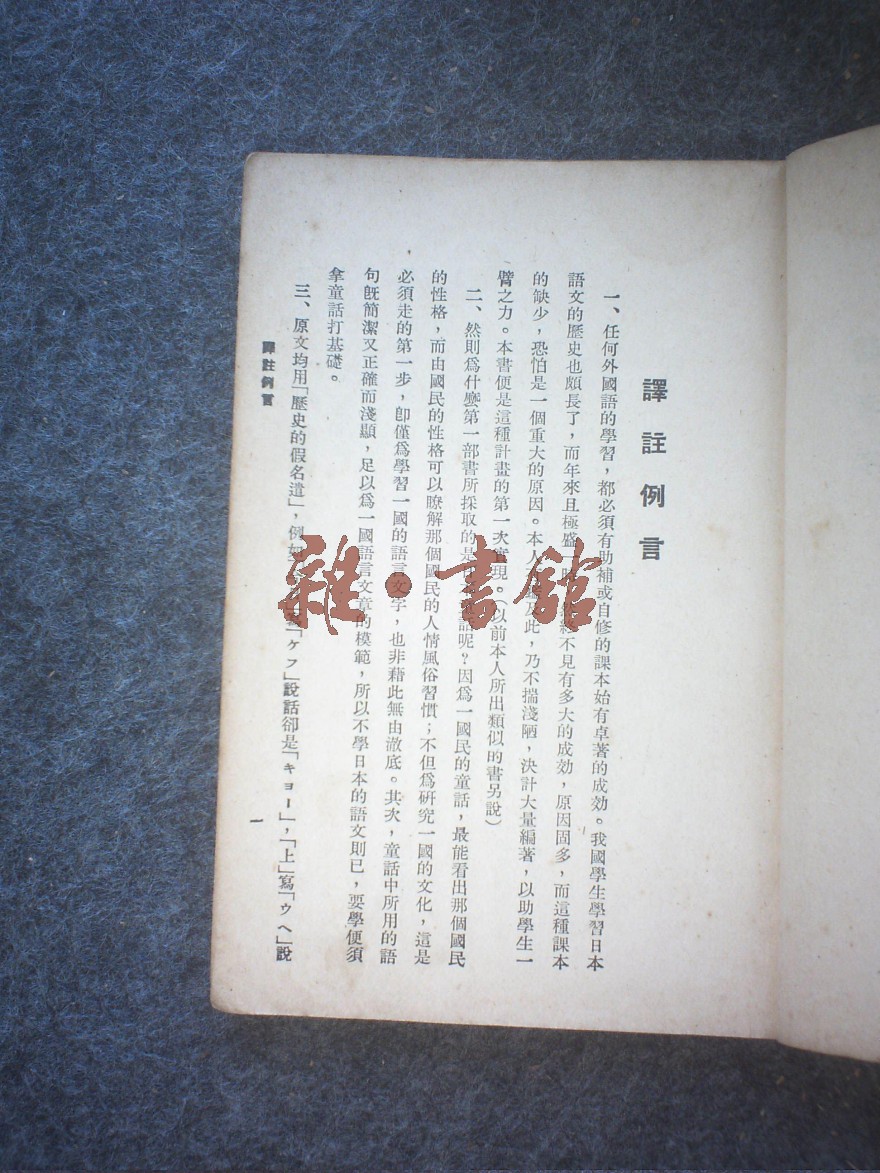 譯註例言
一、任何外國語的學習，都必須有助補或自修的課本始有卓著的成効。我國學生學習日本
語文的歷史也頗長了，而年來且極盛一時，不見有多大的成効，原因固多，而這種課本
的缺少，恐怕是一個重大的原因。本人及此，乃不揣淺陋，決計大量編著，以助學生一
臂之力。本書便是這種計畫的第一次實現。以前本人所出類似的書另說）
二、然則爲什麼第一部書所採取的是話呢？因爲一國民的童話，最能看出那個國民
的性格，而由國民的性格可以瞭解那個國民的人情風俗習慣；不但爲研究一國的文化，這是
必須走的第一步，卽僅爲學習一國的語言文字，也非藉此無由澈底。其次，童話中所用的語
句旣簡潔又正確而淺顯，足以爲一國語言文章的模範，所以不學日本的語文則已，要學便須
拿童話打基礎。
三、原文均用「歷史的假名遣」，例如「ケフ」說話卻是「キョー」，「上」寫「ウヘ」說
譯註例言
一
雜·書館